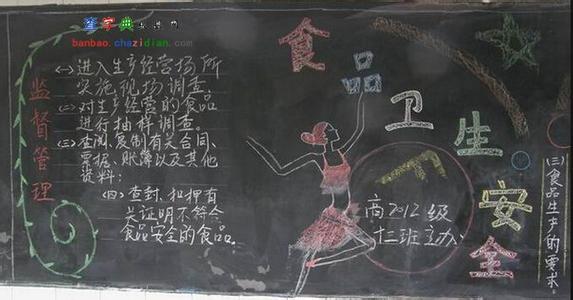 查字典
banbao.chazidian.com
食品卫生安全
监督管理
(一)进入生产经营场所
实施现场调查。
(二)对生产经营的食品
进行抽样调查。
(三)查阅、复制有关合同、
票据、账簿以及其他
资料;
(四)查封、扣押有
关证明不符合
食品安全的食品。
高2012级
十二班主办
(三)食品生产的要求。